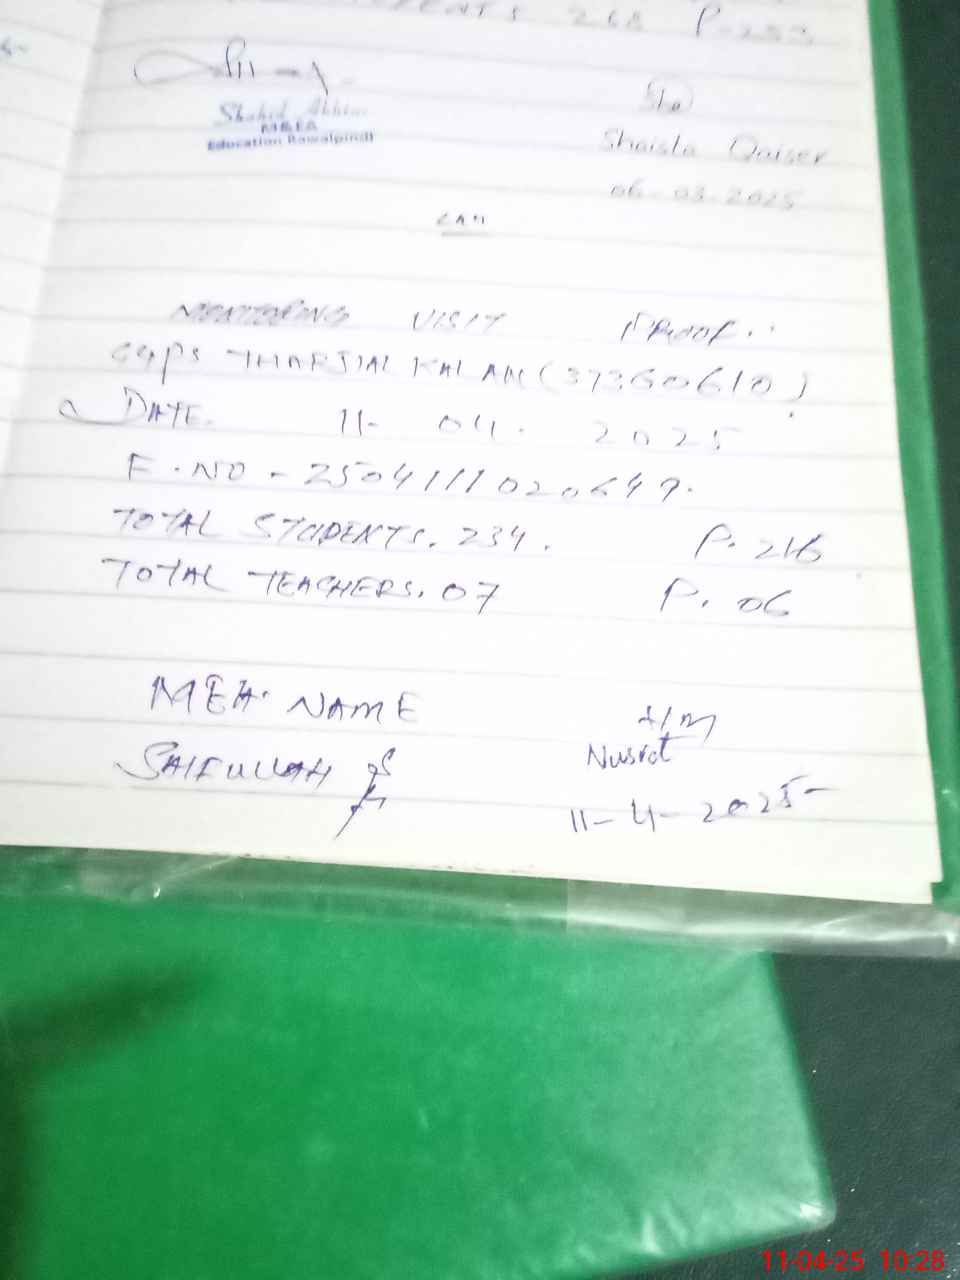 268 P-253
Shahid Akhtar
M&EA
Education Rawalpindi
Shaista Qaiser
06-03-2025
MONITORING VISIT PROOF.
GGPS THARJIAL KALAN (37360610)
DATE. 11. 04. 2025
F.NO - 2504111020649.
TOTAL STUDENTS. 234. P. 216
TOTAL TEACHERS. 07 P. 06
MEA. NAME
SAIFULLAH
H/M
Nusrat
11-4-2025
11-04-25 10:28